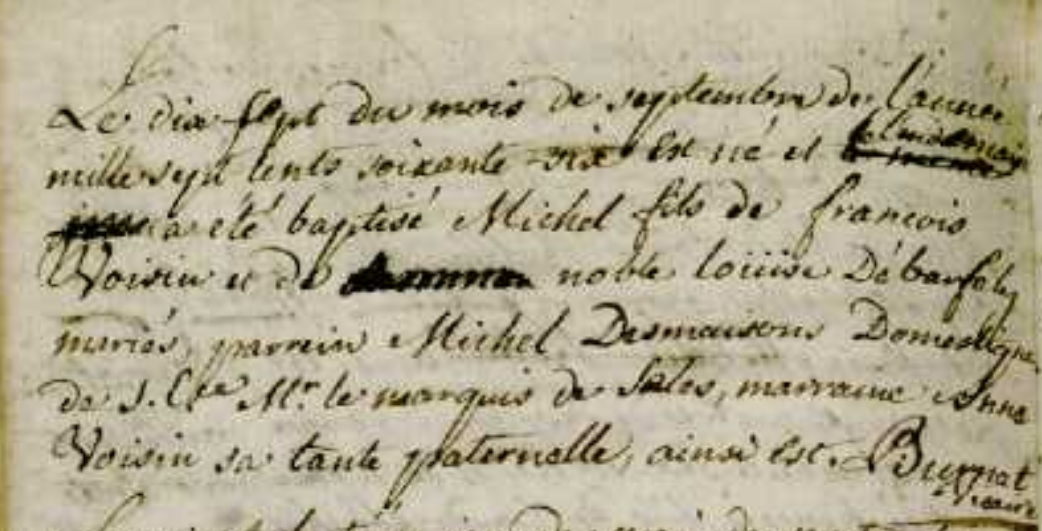 Le dix sept du mois de septembre de l'année
mille sept cents soixante six est né et le lendemain
a été baptisé Michel fils de françois
Voisin et de noble loüise Débarfel
mariés, parrein Michel Desmaisons Domestique
de S. Ex.ce Mr. le marquis de Sales, marraine Anne
Voisin sa tante paternelle, ainsi est. Burnat